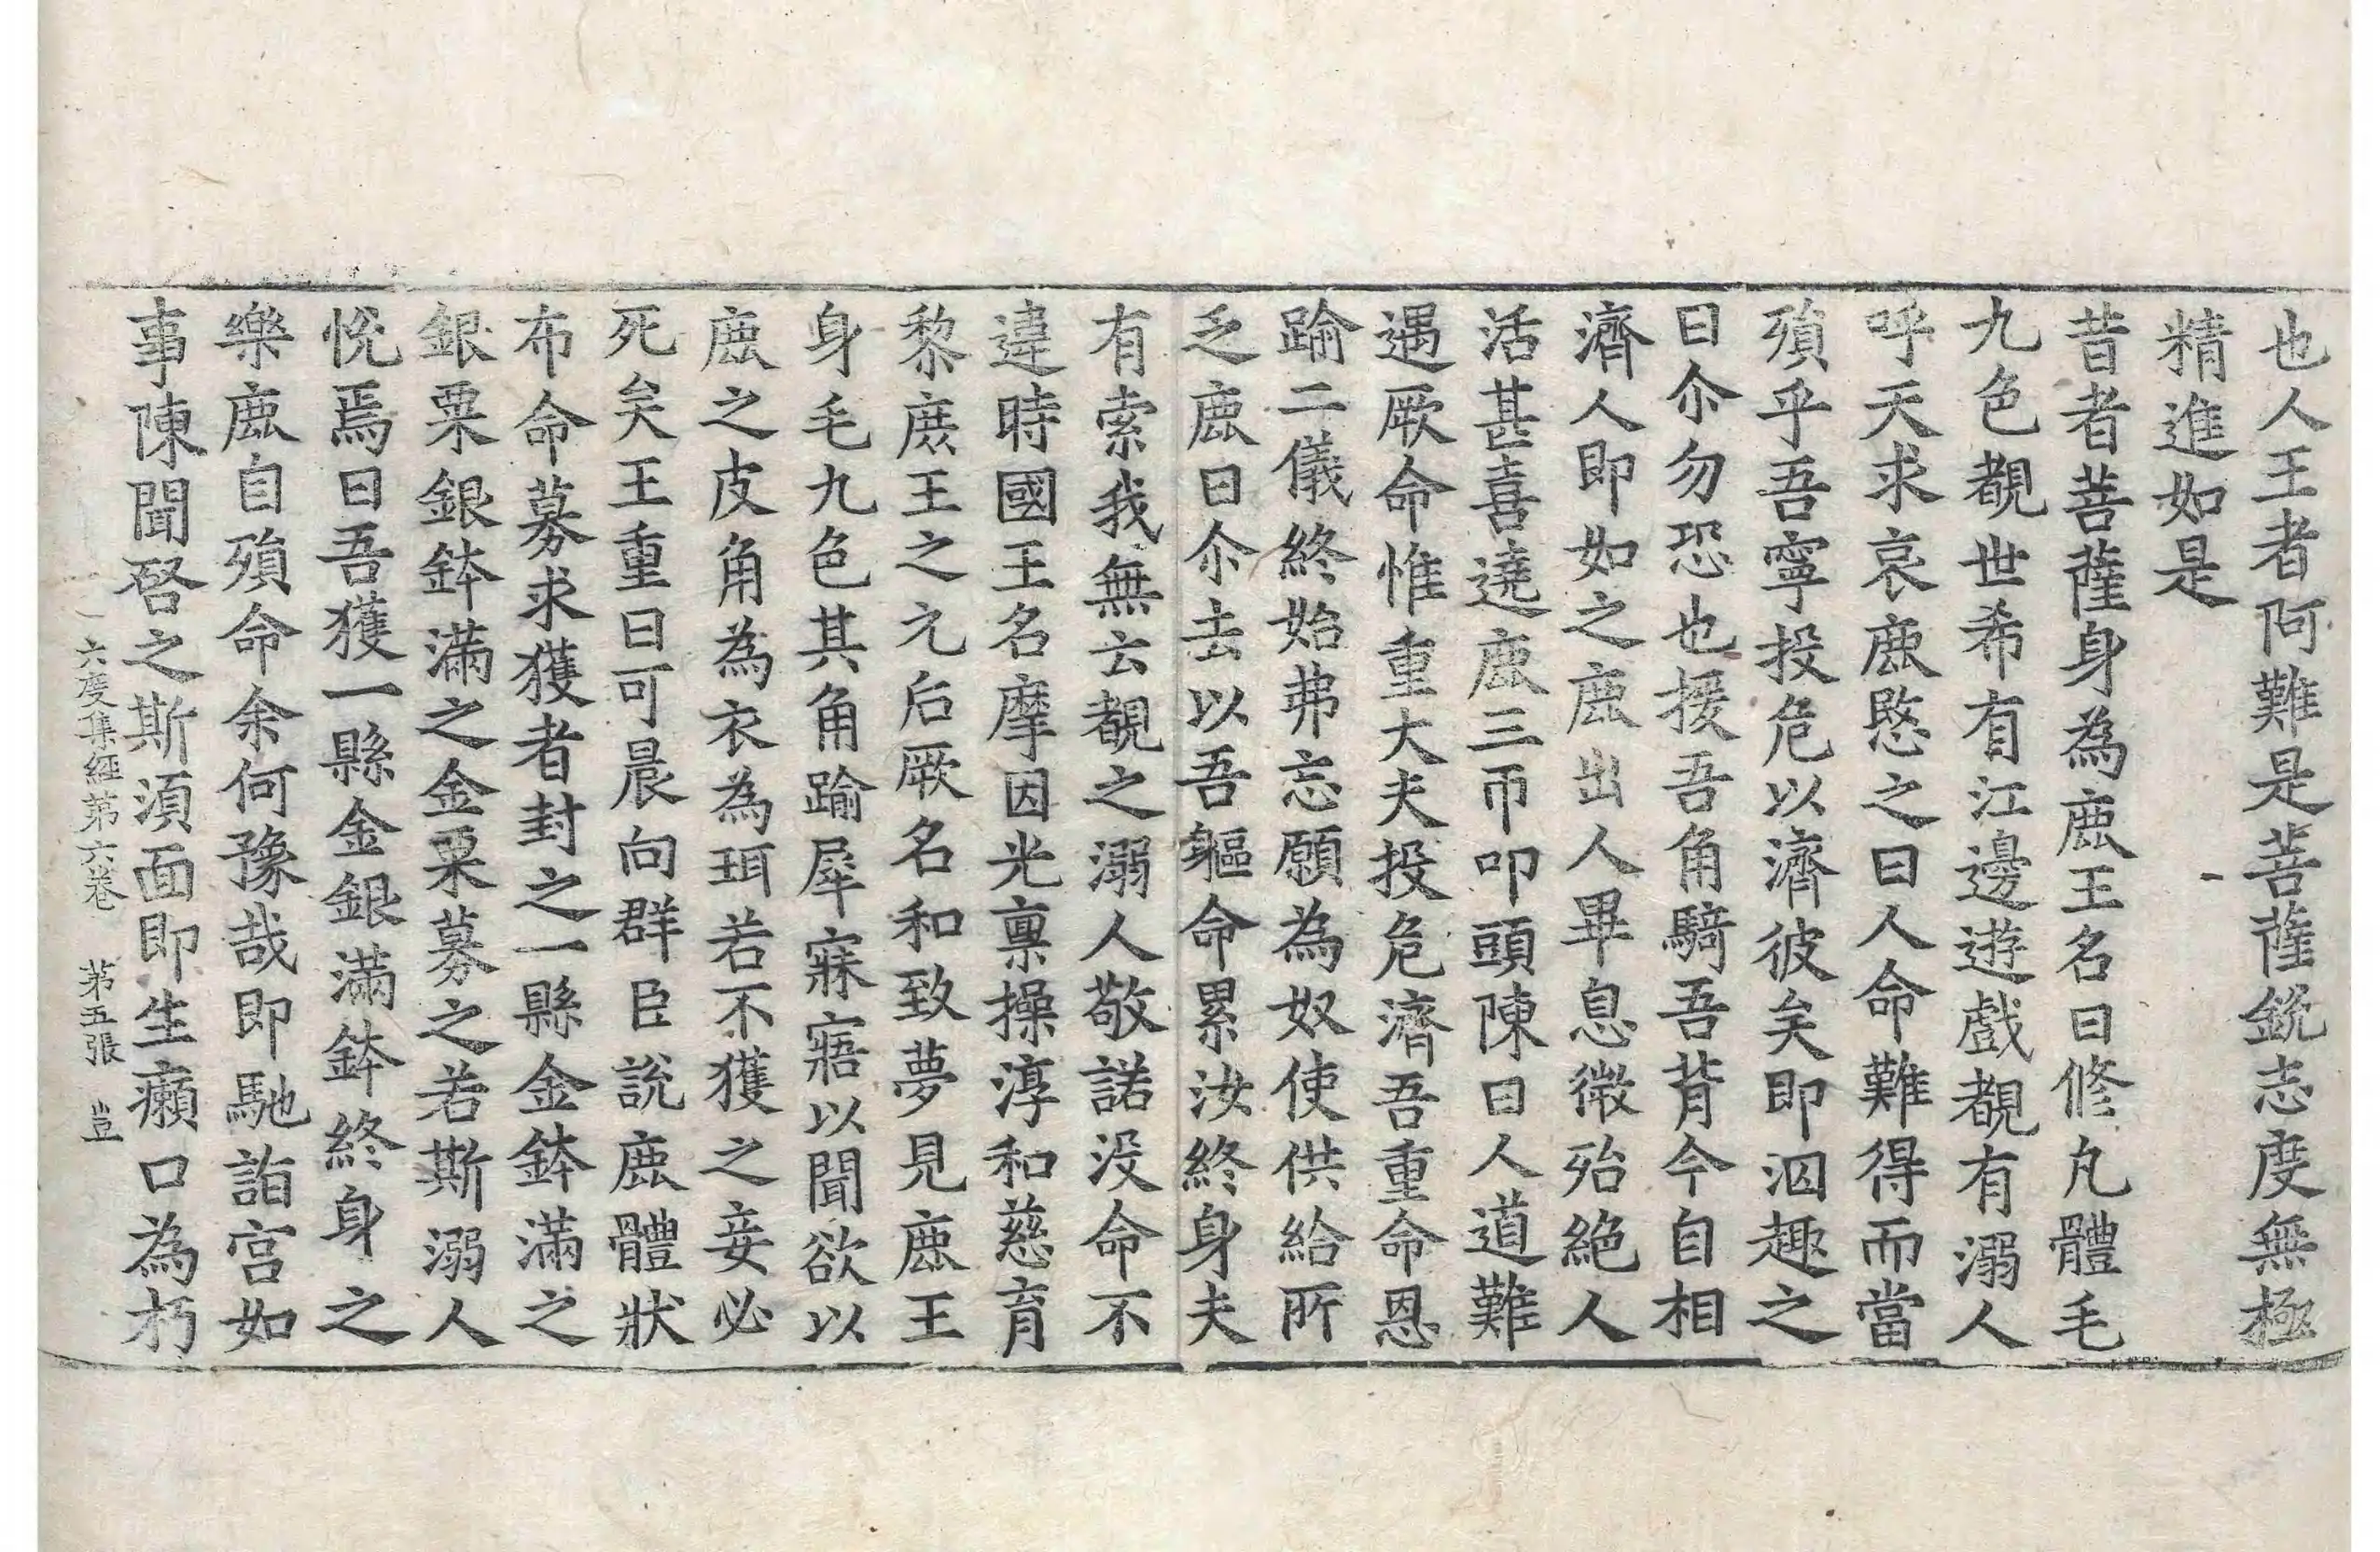 也人王者阿難是菩薩銳志度無極
精進如是
昔者菩薩身為鹿王名曰修凡體毛
九色覩世希有江邊遊戲覩有溺人
呼天求哀鹿愍之曰人命難得而當
殞乎吾寧投危以濟彼矣即泅趣之
曰尒勿恐也援吾角騎吾背今自相
濟人即如之鹿出人畢息微殆絕人
活甚喜遶鹿三帀叩頭陳曰人道難
遇厥命惟重大夫投危濟吾重命恩
踰二儀終始弗忘願為奴使供給所
乏鹿曰尒去以吾軀命累汝終身夫
有索我無云覩之溺人敬諾没命不
違時國王名摩因光稟操淳和慈育
黎庶王之元后厥名和致夢見鹿王
身毛九色其角踰犀寐寤以聞欲以
鹿之皮角為衣為珥若不獲之妾必
死矣王重曰可晨向群臣說鹿體狀
布命募求獲者封之一縣金鉢滿之
銀粟銀鉢滿之金粟募之若斯溺人
悅焉曰吾獲一縣金銀滿鉢終身之
樂鹿自殞命余何豫哉即馳詣宮如
事陳聞啓之斯須面即生癩口為朽
六度集經第六卷　第五張　豈